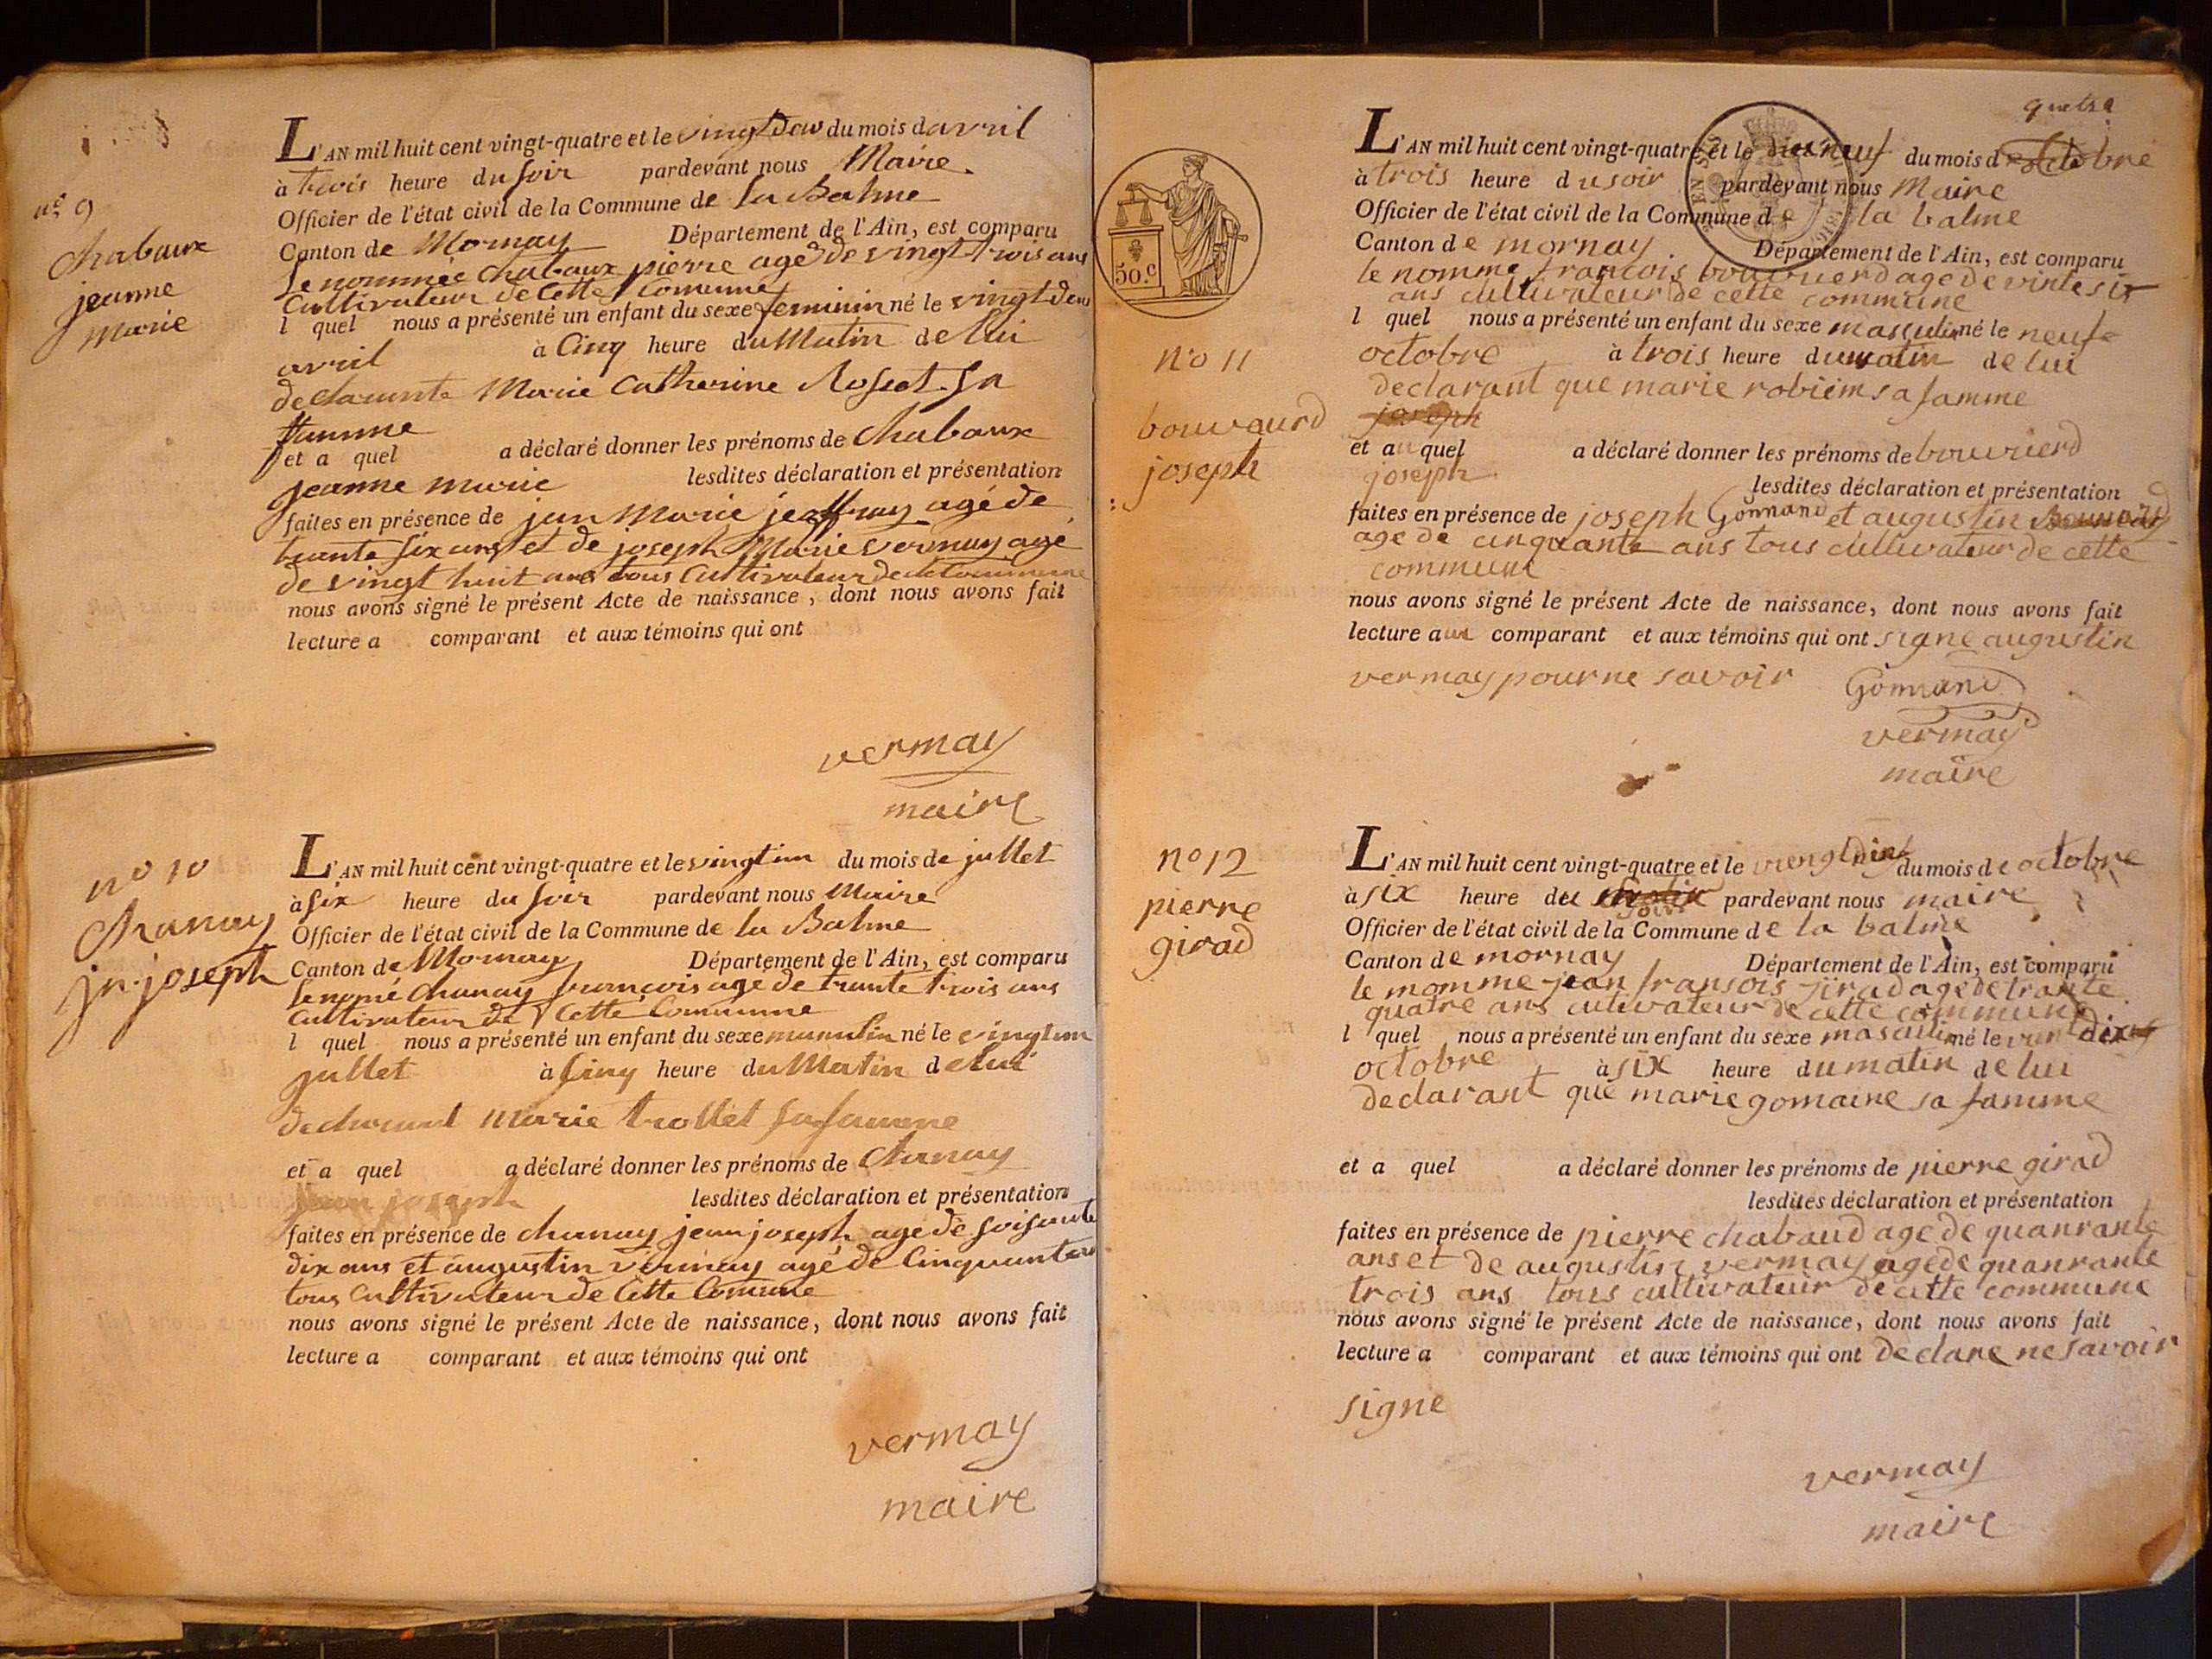 n.º 9
Chabaux
jeanne
marie
L'AN mil huit cent vingt-quatre et le vingt deux du mois d avril
à trois heure du soir pardevant nous Maire.
Officier de l'état civil de la Commune de la Balme
Canton de Mornay Département de l'Ain, est comparu
le nommée Chabaux pierre agé de vingt trois ans
Cultivateur de Cette Comune
l quel nous a présenté un enfant du sexe feminin né le vingt deux
avril à Cinq heure du Matin de lui
declarante Marie Catherine Rosset sa
famme
et a quel a déclaré donner les prénoms de Chabaux
jeanne marie lesdites déclaration et présentation
faites en présence de jan Marie jeaffray agé de
trante six ans et de joseph Marie vermay agé
de vingt huit ans tous Cultivateur de
nous avons signé le présent Acte de naissance, dont nous avons fait
lecture a comparant et aux témoins qui ont
vermay
maire
nº 10
Chanay
jn. joseph
L'AN mil huit cent vingt-quatre et le vingtun du mois de jullet
à six heure du soir pardevant nous Maire
Officier de l'état civil de la Commune de la Balme
Canton de Mornay Département de l'Ain, est comparu
le nomé Chanay francois agé de trante trois ans
Cultivateur de Cette Commune
l quel nous a présenté un enfant du sexe né le vingtun
jullet à Cinq heure du Matin de lui
declarant Marie trollet sa famme
et a quel a déclaré donner les prénoms de Chanay
jean joseph lesdites déclaration et présentation
faites en présence de chanay jean joseph agé de soisante
dix ans et augustin vermay agé de Cinquante
tous Cultivateur de Cette Comune
nous avons signé le présent Acte de naissance, dont nous avons fait
lecture a comparant et aux témoins qui ont
vermay
maire
L'AN mil huit cent vingt-quatre et le dix neuf du mois d octobre
à trois heure du soir pardevant nous Maire
Officier de l'état civil de la Commune de la balme
Canton de mornay Département de l'Ain, est comparu
le nomme francois bouvrierd age de vinte six
ans cultivateur de cette commune
l quel nous a présenté un enfant du sexe masculin né le neufe
octobre à trois heure du matin de lui
declarant que marie robiem sa famme
joseph
et au quel a déclaré donner les prénoms de bouvrierd
joseph lesdites déclaration et présentation
faites en présence de joseph Gonnand et augustin
age de cinquante ans tous cultivateur de cette
commune
nous avons signé le présent Acte de naissance, dont nous avons fait
lecture aux comparant et aux témoins qui ont signe augustin
vermay pour ne savoir Gonnand
vermay
maire
50.c
no 11
bouvaurd
joseph
no 12
pierre
girad
L'AN mil huit cent vingt-quatre et le du mois de octobre
à six heure du soir pardevant nous maire
Officier de l'état civil de la Commune de la balme
Canton de mornay Département de l'Ain, est comparu
le nomme jean fransois jirad age de trante
quatre ans cultivateur de cette commune
l quel nous a présenté un enfant du sexe masculin né le
octobre à six heure du matin de lui
declarant que marie gomaine sa famme
et a quel a déclaré donner les prénoms de pierre girad
lesdites déclaration et présentation
faites en présence de pierre chabaud age de quanrante
ans et de augustin vermay age de quanrante
trois ans tous cultivateur de cette commune
nous avons signé le présent Acte de naissance, dont nous avons fait
lecture a comparant et aux témoins qui ont declare ne savoir
signe
vermay
maire